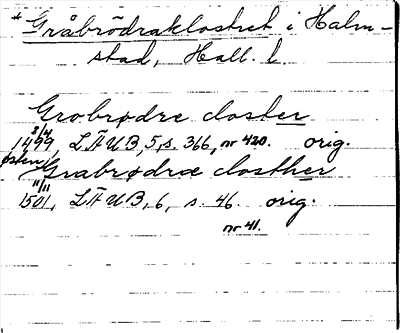 * Gråbrödraklostret i Halm-
stad, Hall. l.
Grobrødre closter
8/4
1499, LÄUB, 5, s. 366, nr 420. orig.
østen Grabrødræ closther
11/11
1501, LÄUB, 6, s. 46. orig.
nr 41.